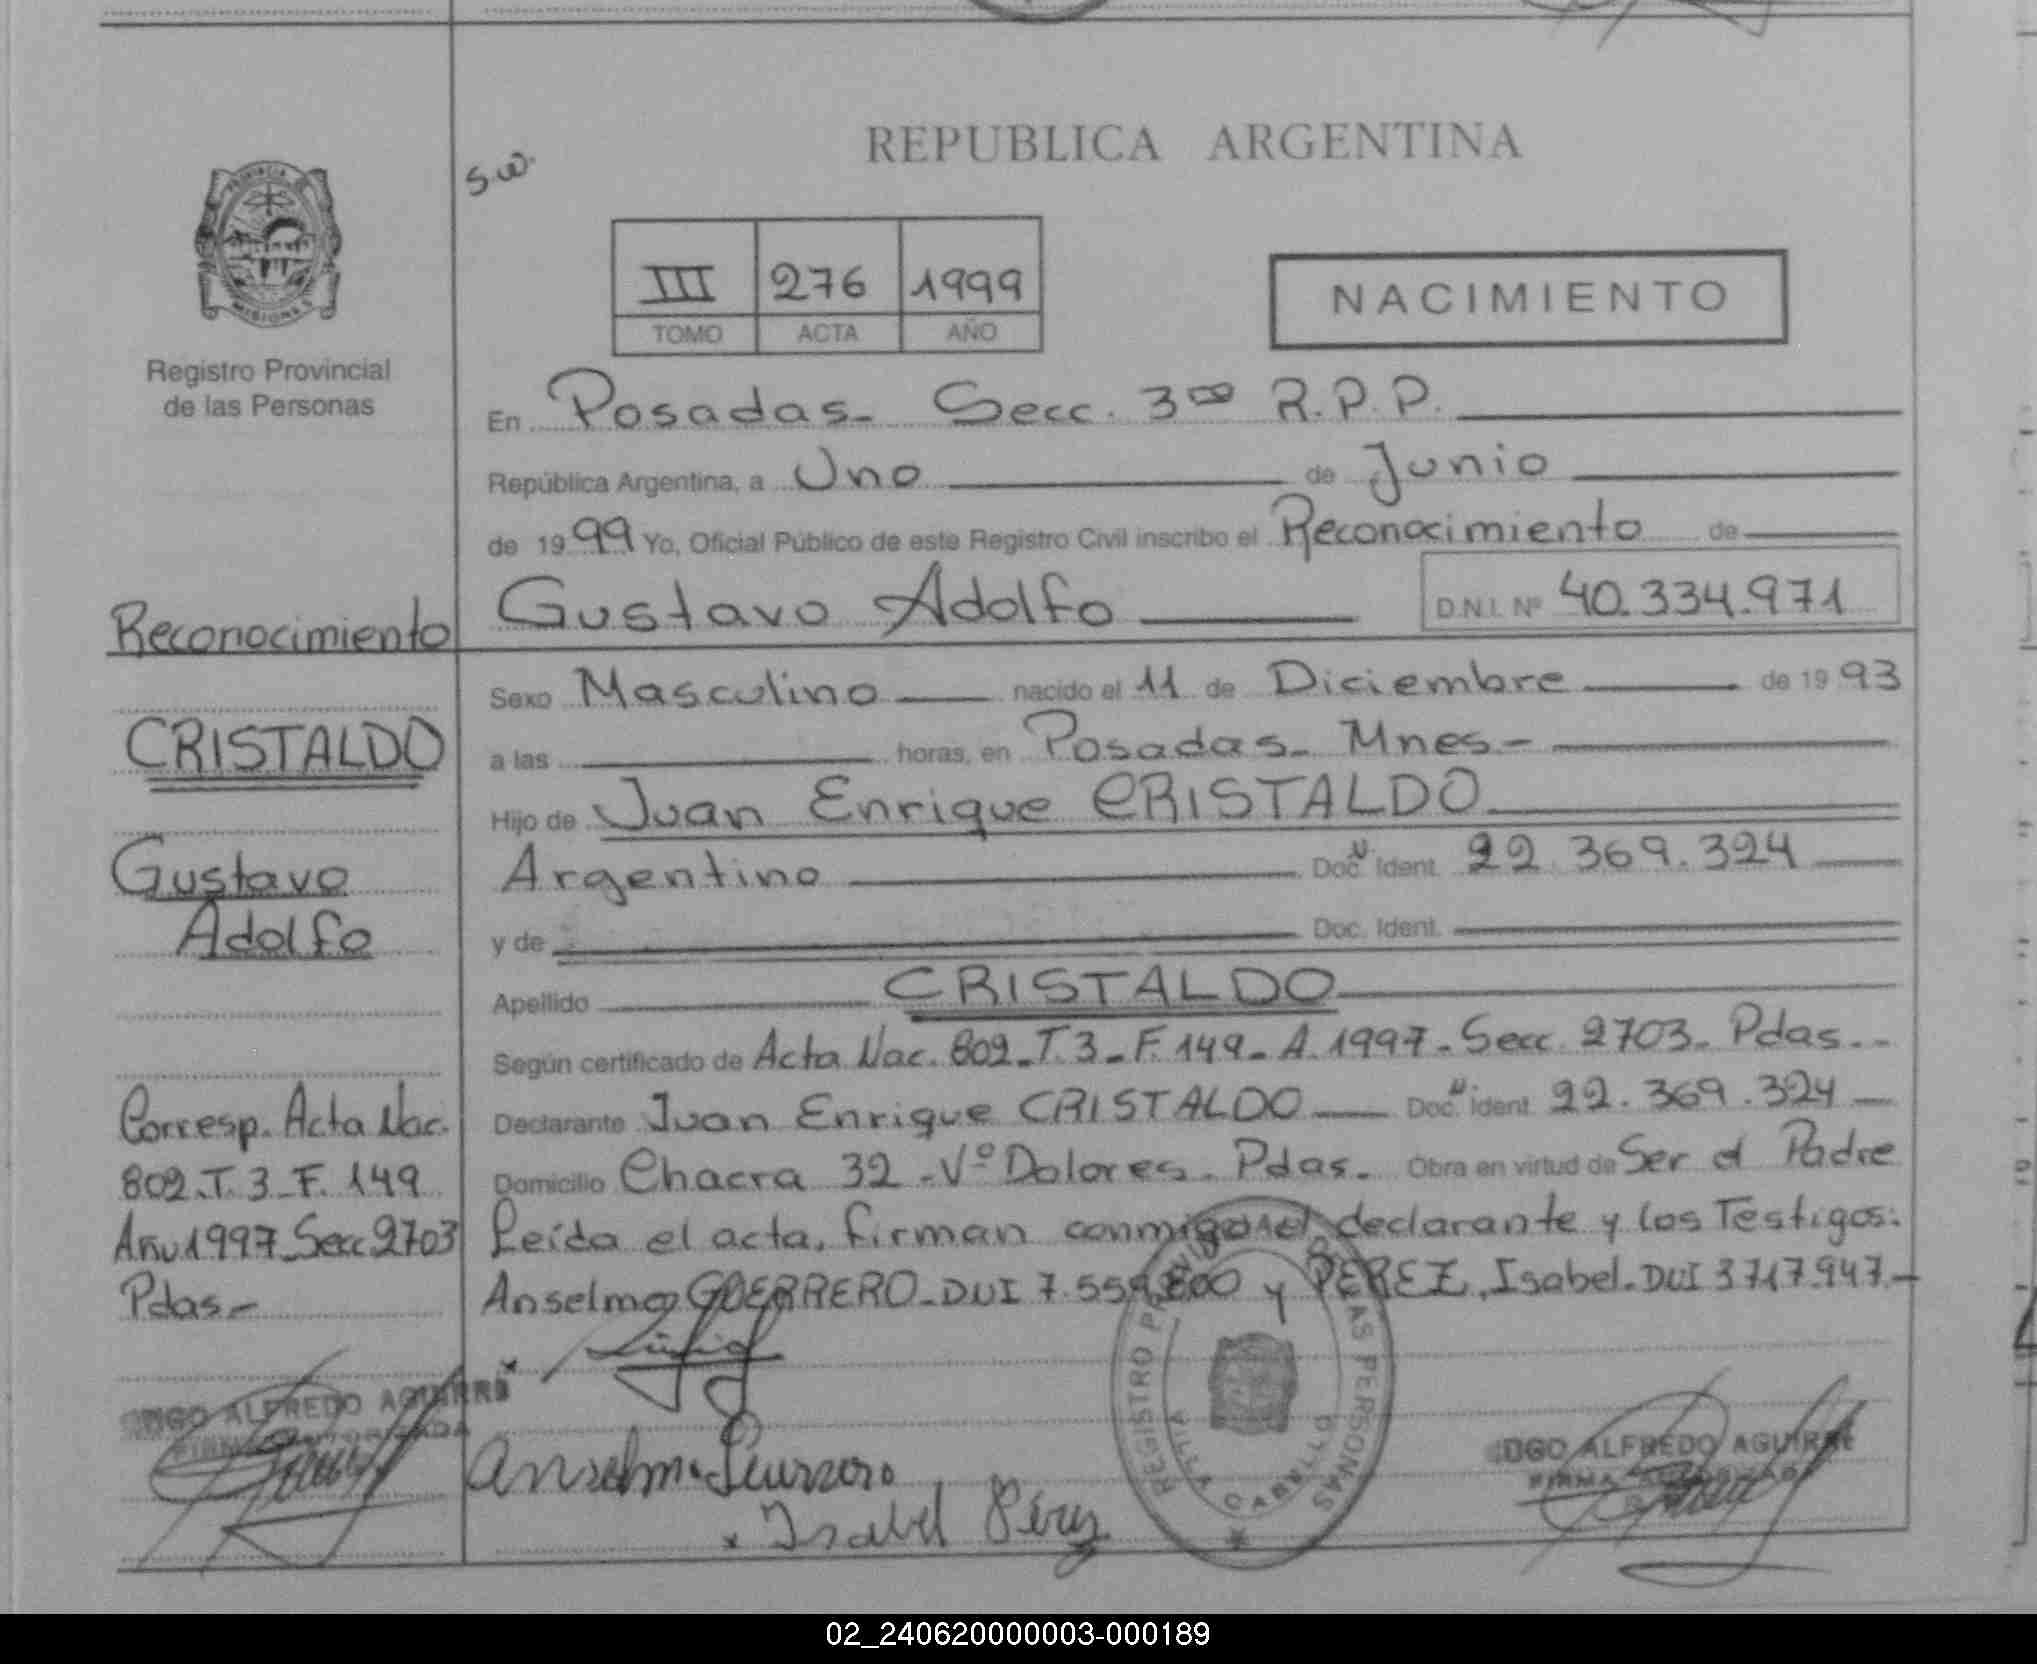 REPUBLICA ARGENTINA
S.W.
PROVINCIA DE
MISIONES
Registro Provincial
de las Personas
III 276 1999
TOMO ACTA AÑO
NACIMIENTO
En Posadas - Secc. 3ra R.P.P.
República Argentina, a Uno de Junio
de 1999 Yo, Oficial Público de este Registro Civil inscribo el Reconocimiento de
Gustavo Adolfo D.N.I. Nº 40.334.971
Sexo Masculino nacido el 11 de Diciembre de 1993
a las horas, en Posadas - Mnes -
Hijo de Juan Enrique CRISTALDO
Argentino Doc. Ident. 22.369.324
y de Doc. Ident.
Apellido CRISTALDO
Según certificado de Acta Nac. 802 - T. 3 - F. 149 - A. 1997 - Secc. 2703 - Pdas. -
Declarante Juan Enrique CRISTALDO Doc. Ident. 22.369.324
Domicilio Chacra 32 - Vº Dolores - Pdas. Obra en virtud de Ser el Padre
Leída el acta, firman conmigo el declarante y los Testigos:
Anselmo GUERRERO - DUI 7.559.800 y PEREZ, Isabel - DUI 3717.947 -
Reconocimiento
CRISTALDO
Gustavo
Adolfo
Corresp. Acta Nac.
802 - T. 3 - F. 149
Año 1997 - Secc 2703
Pdas -
ALFREDO AGUIRRE
FIRMA AUTORIZADA
Anselmo Guerrero
x Isabel Pérez
REGISTRO PROVINCIAL DE LAS PERSONAS
VILLA CABELLO
ALFREDO AGUIRRE
FIRMA AUTORIZADA
02_240620000003-000189